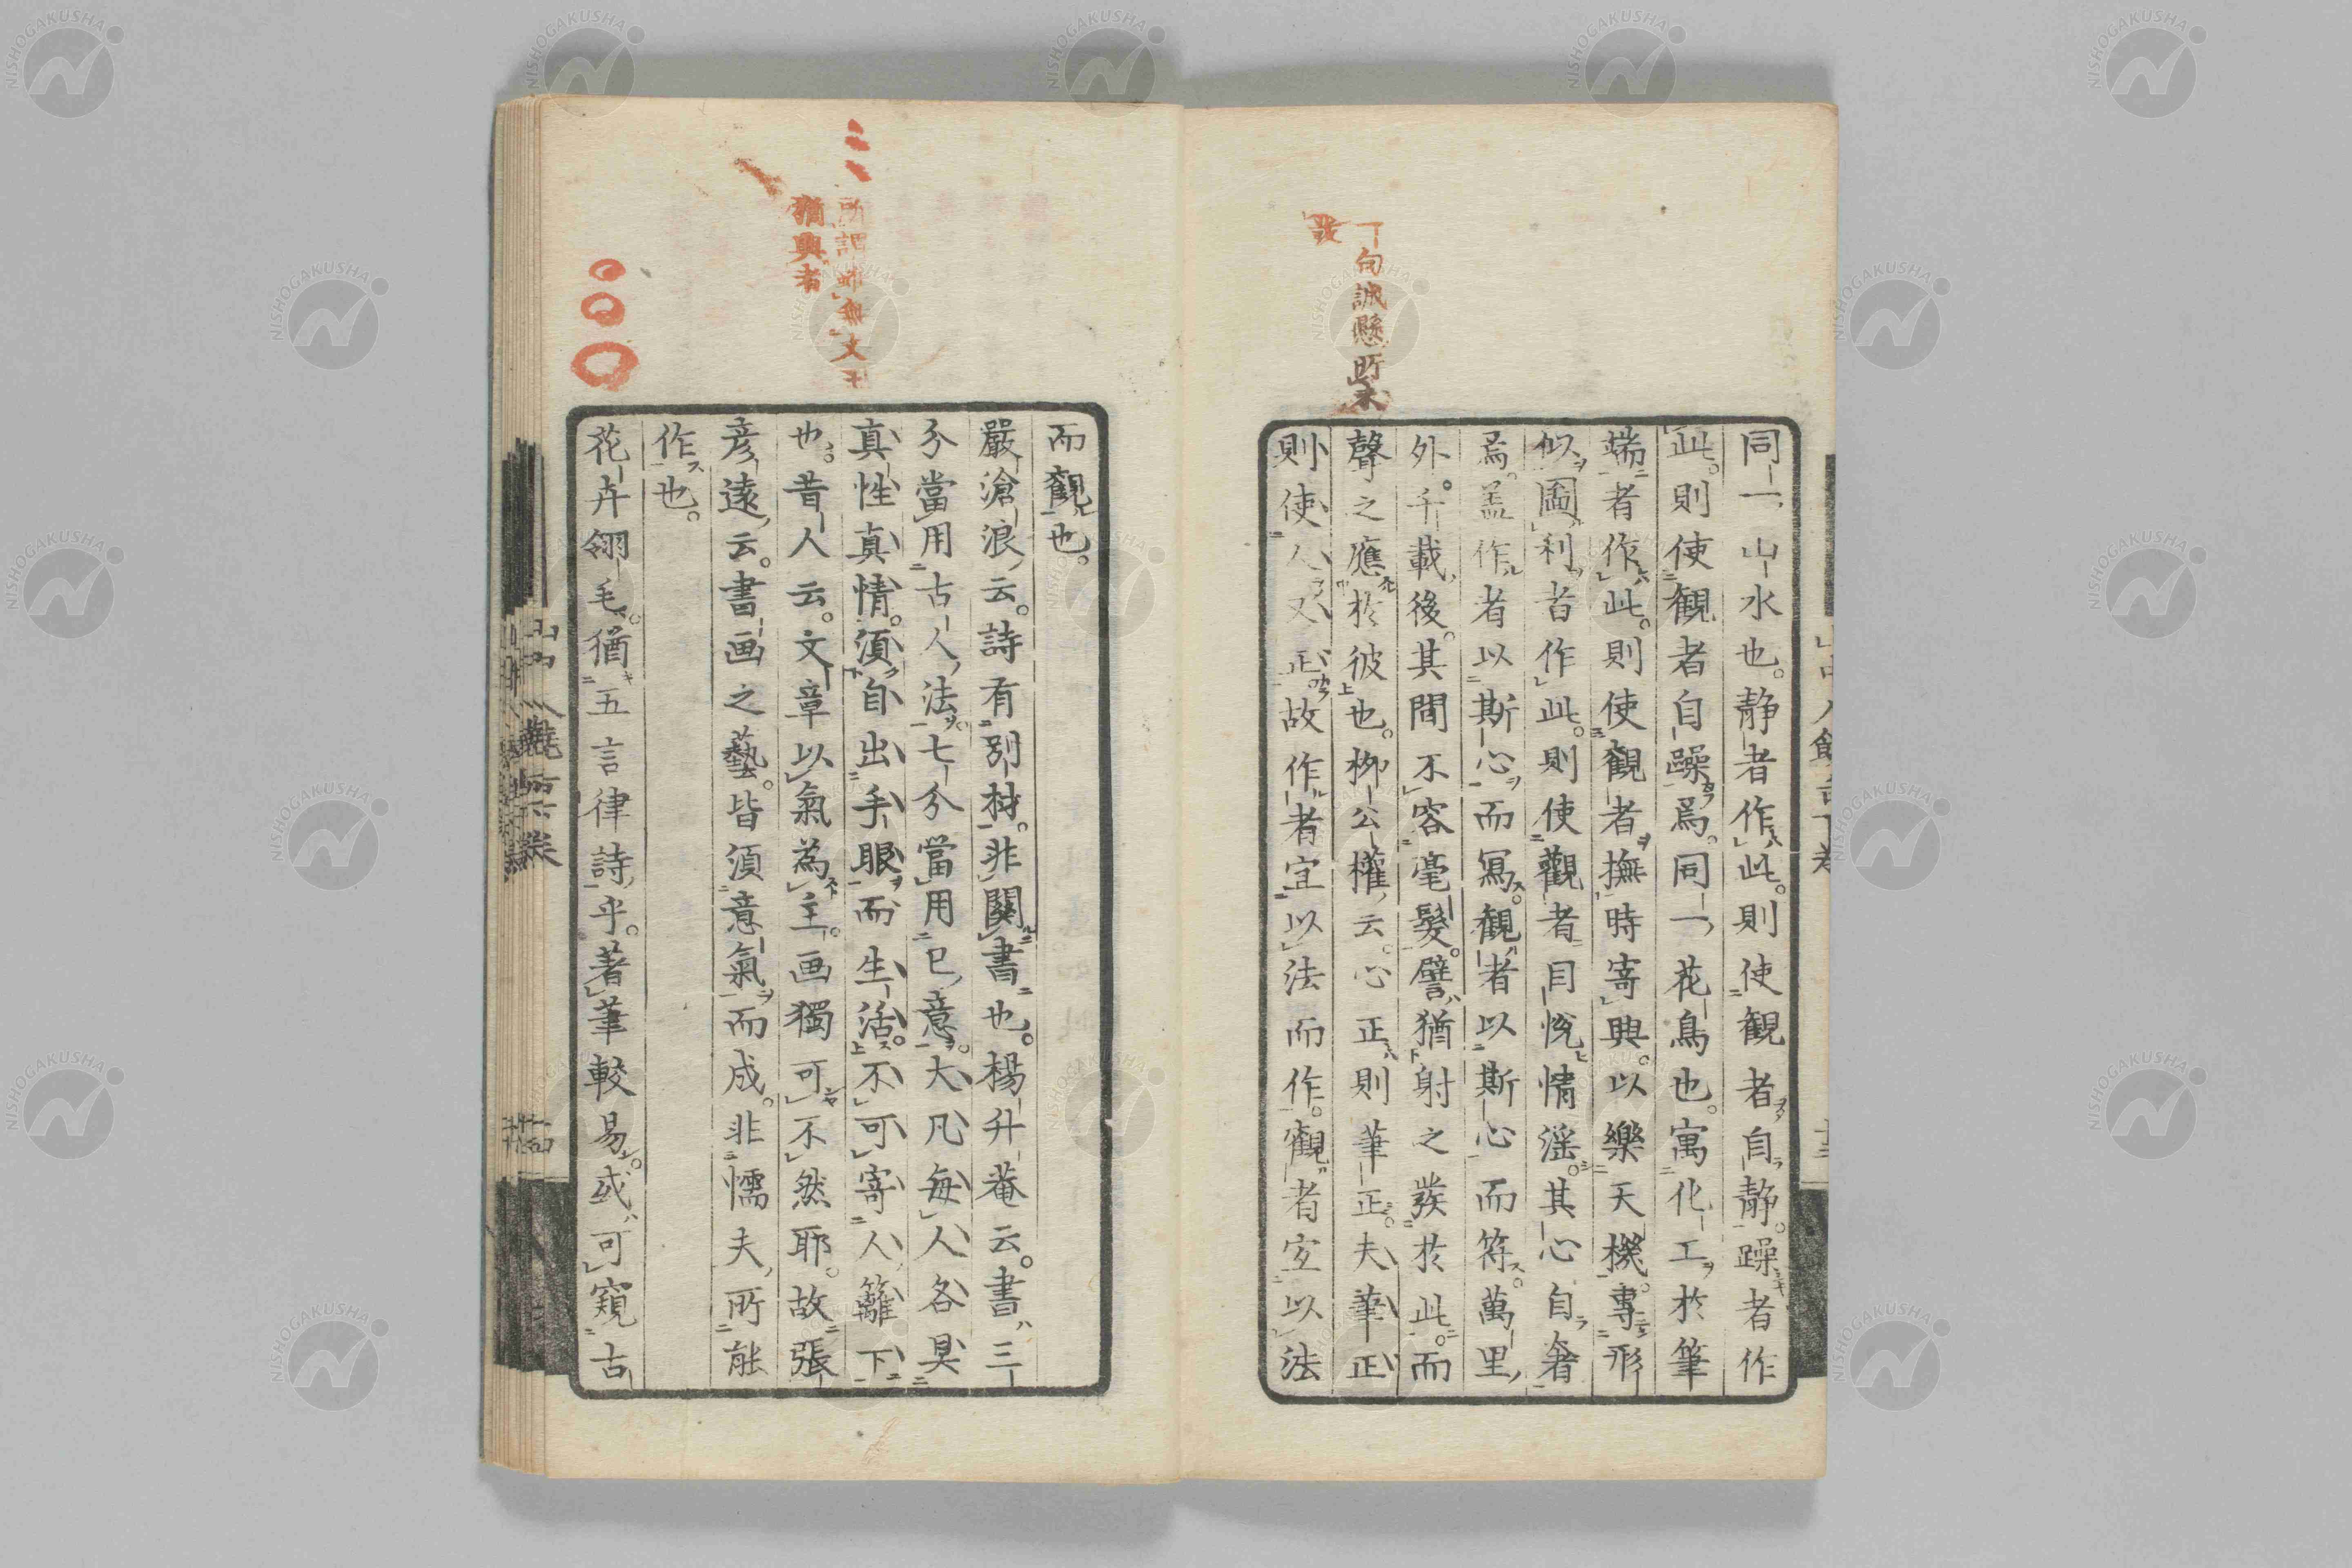 同一山水也。静者作此。則使観者自静。躁者作
此。則使観者自躁焉。同一花鳥也。寓化工於筆
端者作此。則使観者撫時寄興。以樂天機。專形
似圖利者作此。則使觀者目悅情滛。其心自奢
焉。盖作者以斯心而冩。観者以斯心而符。萬里
外。千載後。其間不容毫髮。譬猶射之發於此。而
聲之應於彼也。柳公權云。心正則筆正。夫筆正
則使人又正。故作者宜以法而作。觀者宜以法
而観也。
嚴滄浪云。詩有別材。非關書也。楊升菴云。書三
分當用古人法。七分當用已意。大凡毎人各具
真性真情。須自出手眼而生活。不可寄人籬下
也。昔人云。文章以氣為主。画獨可不然耶。故張
彦遠云。書画之藝。皆須意氣而成。非懦夫所能
作也。
花卉翎毛。猶五言律詩乎。著筆較易。或可窺古
猶興者
NISHOGAKUSHA